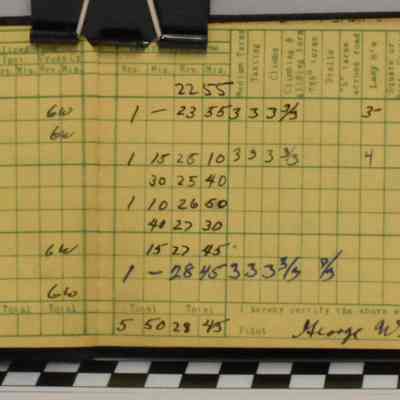 Hrs. Min. Hrs. Min. Hrs. Min. Hrs. Min. Medium Turns Taxiing Climbs Climbing & Gliding Turns Stalls Lazy 8's
22 55
6W 1 — 23 55 3 3 3 3/3 3-
6W
1 15 25 10 3 3 3 3/3 4
30 25 40
1 10 26 50
40 27 30
6W 15 27 45
1 — 28 45 3 3 3 3/3 3/3
6W
Total Total Total Total I hereby certify the above
5 50 28 45 Pilot George W